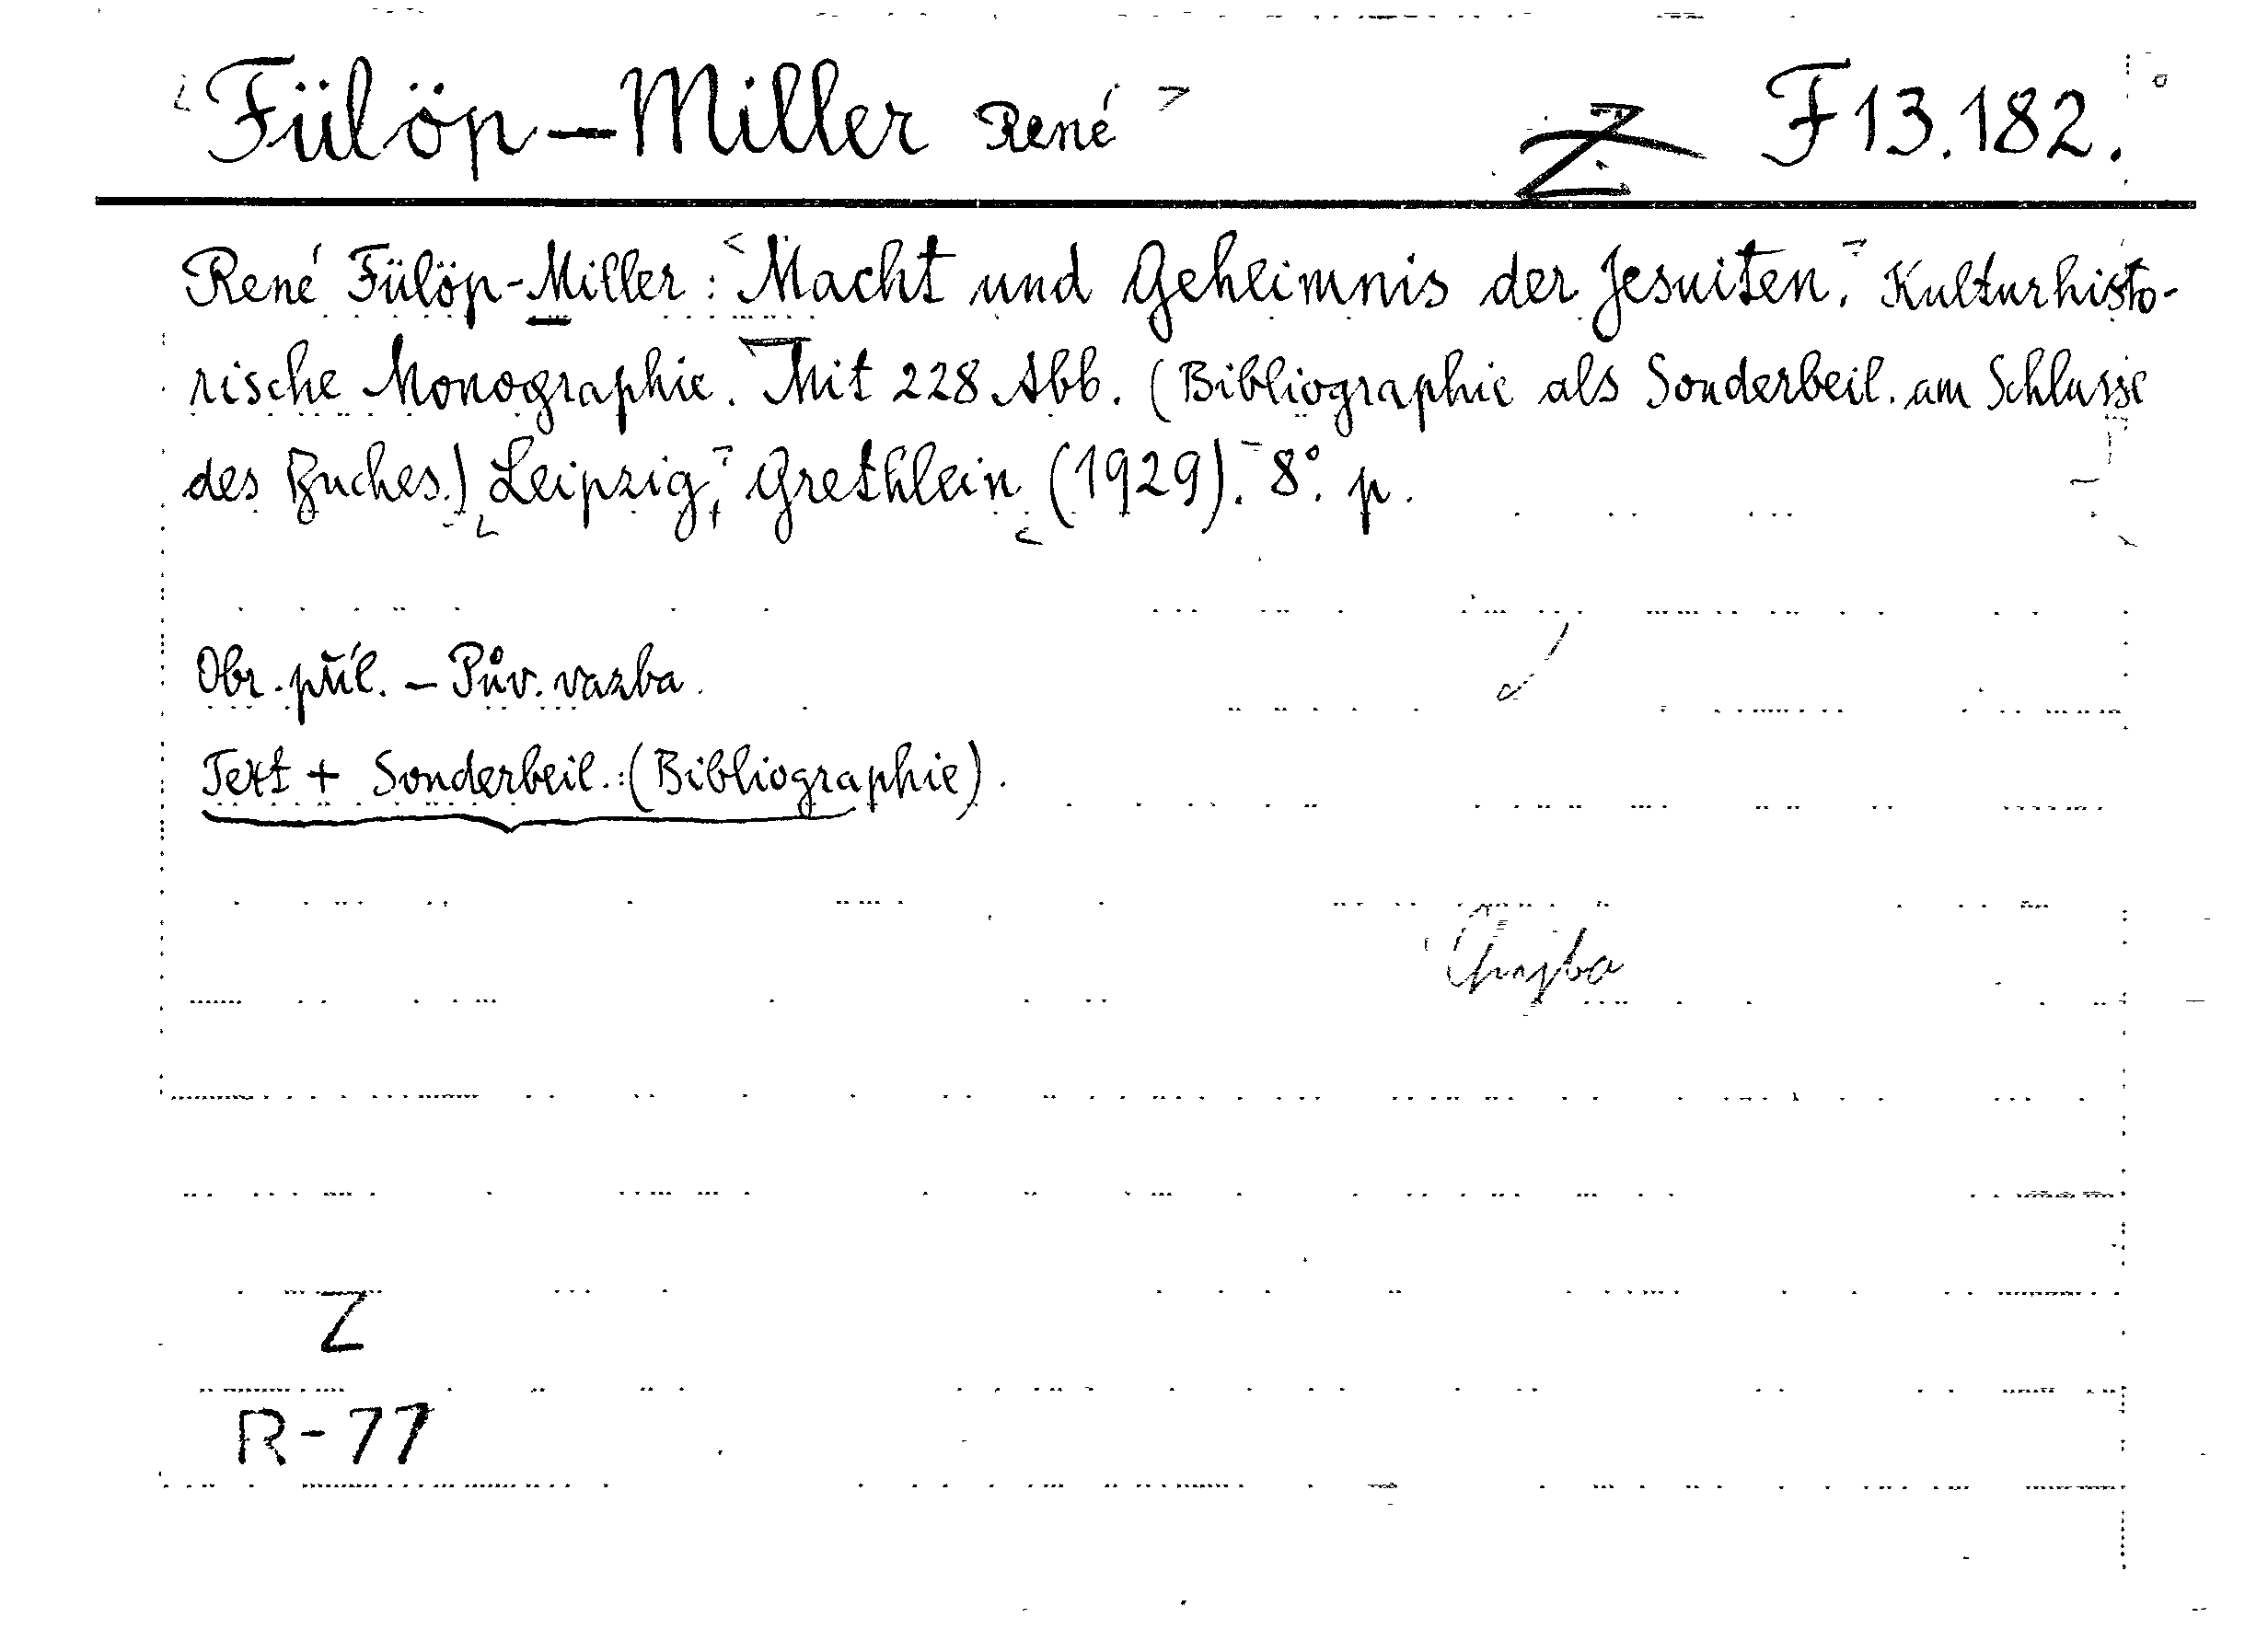 Fülöp-Miller René Z F 13.182.
René Fülöp-Miller: Macht und Geheimnis der Jesuiten. Kulturhisto-
rische Monographie. Mit 228 Abb. (Bibliographie als Sonderbeil. am Schlusse
des Buches.) Leipzig, Grethlein (1929). 8°. p.
Obr. příl. – Pův. vazba.
Text + Sonderbeil.: (Bibliographie).
Z
R-77